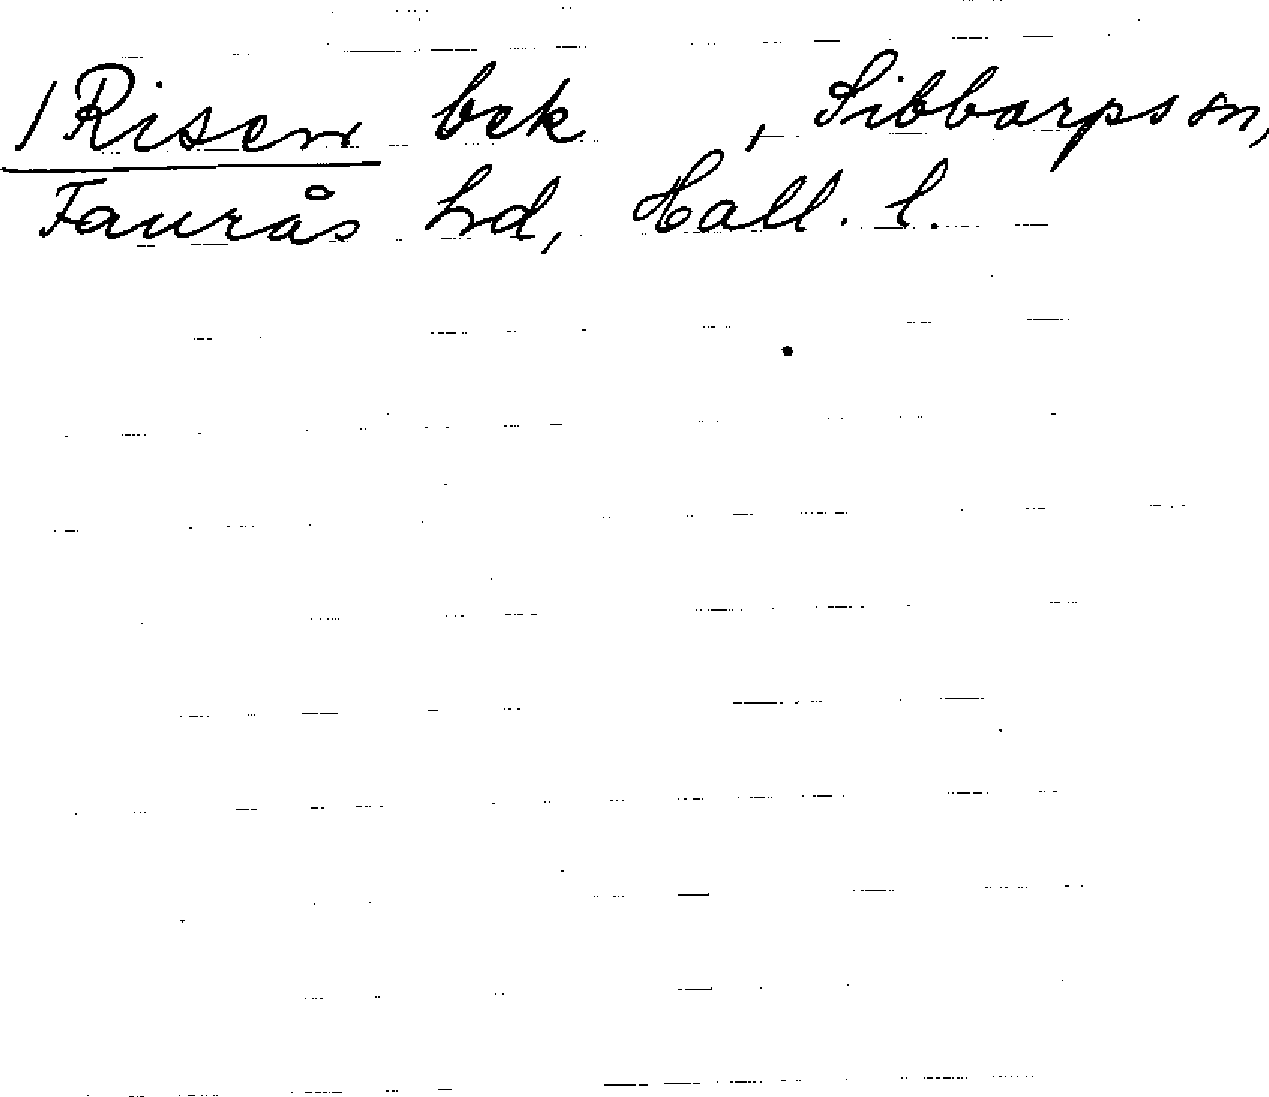 /Risen bek , Sibbarps sn,
Faurås hd, Hall. l.